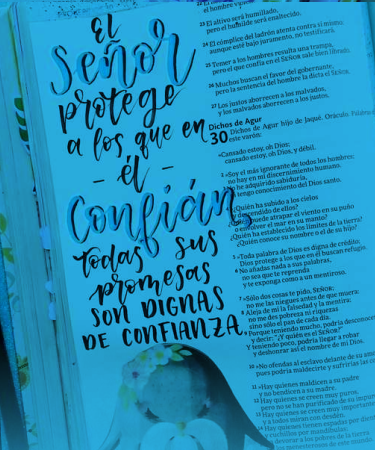 El
Señor
protege
a los que en
- él -
Confían,
todas sus
promesas
SON DIGNAS
DE CONFIANZA
23 El altivo será humillado,
pero el humilde será enaltecido.
24 El cómplice del ladrón atenta contra sí mismo;
aunque esté bajo juramento, no testificará.
25 Temer a los hombres resulta una trampa,
pero el que confía en el SEÑOR sale bien librado.
26 Muchos buscan el favor del gobernante,
pero la sentencia del hombre la dicta el SEÑOR.
27 Los justos aborrecen a los malvados,
y los malvados aborrecen a los justos.
Dichos de Agur
30 Dichos de Agur hijo de Jaqué. Oráculo. Palabras
este varón:
«Cansado estoy, oh Dios;
cansado estoy, oh Dios, y débil.
2 »Soy el más ignorante de todos los hombres;
no hay en mí discernimiento humano.
3 No he adquirido sabiduría,
ni tengo conocimiento del Dios santo.
4 »¿Quién ha subido a los cielos
descendido de ellos?
puede atrapar el viento en su puño
o envolver el mar en su manto?
¿Quién ha establecido los límites de la tierra?
¿Quién conoce su nombre o el de su hijo?
5 »Toda palabra de Dios es digna de crédito;
Dios protege a los que en él buscan refugio.
6 No añadas nada a sus palabras,
no sea que te reprenda
y te exponga como a un mentiroso.
7 »Sólo dos cosas te pido, SEÑOR;
no me las niegues antes de que muera:
8 Aleja de mí la falsedad y la mentira;
no me des pobreza ni riquezas
sino sólo el pan de cada día.
9 Porque teniendo mucho, podría desconocerte
y decir: "¿Y quién es el SEÑOR?"
Y teniendo poco, podría llegar a robar
y deshonrar así el nombre de mi Dios.
10 »No ofendas al esclavo delante de su amo,
pues podría maldecirte y sufrirías las
11 »Hay quienes maldicen a su padre
y no bendicen a su madre.
12 Hay quienes se creen muy puros,
pero no se han purificado de su
13 Hay quienes se creen muy importantes
y a todos miran con desdén.
14 Hay quienes tienen espadas por dientes
y cuchillos por mandíbulas;
devorar a los pobres de la tierra